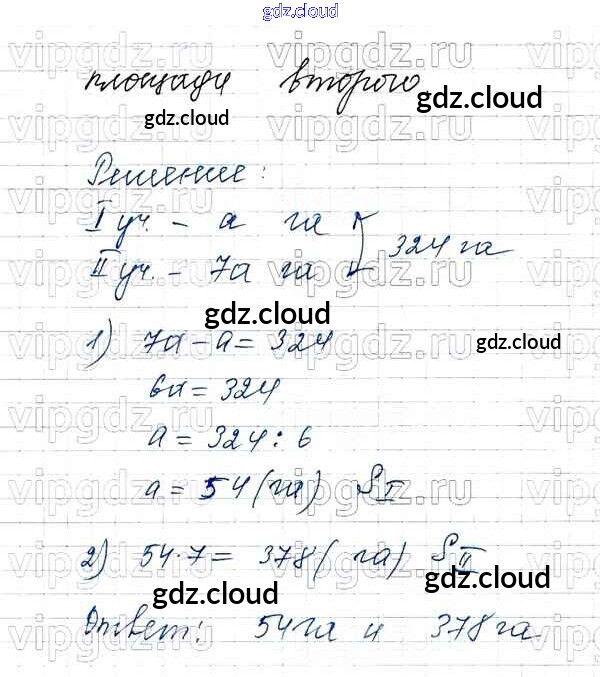 gdz.cloud
площади второго
gdz.cloud
gdz.cloud
Решение:
I уч. - a га
II уч. - 7a га
324 га
gdz.cloud
1) 7a - a = 324
gdz.cloud
6a = 324
a = 324 : 6
a = 54 (га) S I
2) 54 · 7 = 378 (га) S II
gdz.cloud
gdz.cloud
Ответ: 54 га и 378 га
gdz.cloud
vipgdz.ru